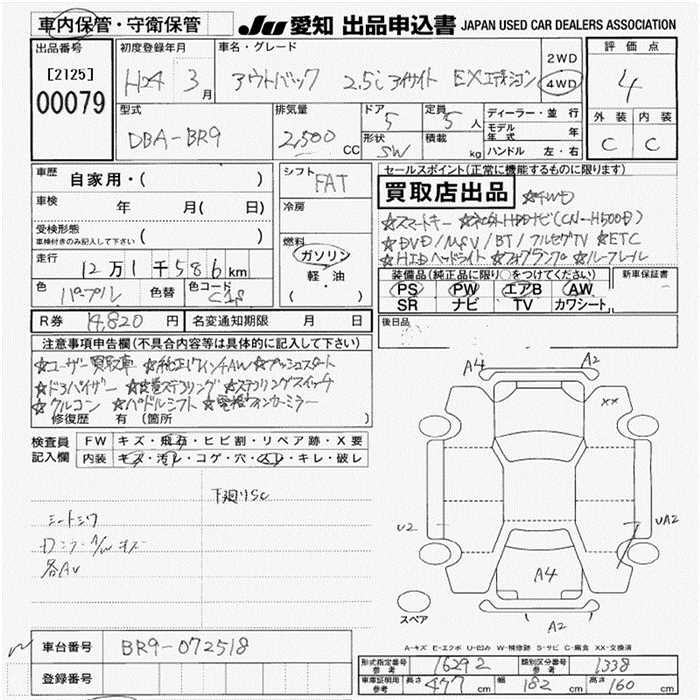 車内保管・守衛保管
JU 愛知 出品申込書 JAPAN USED CAR DEALERS ASSOCIATION
出品番号
[2125]
00079
初度登録年月
H24 3月
車名・グレード
アウトバック 2.5i アイサイト EXエディション
2WD
4WD
評価点
4
外装 内装
C C
型式
DBA-BR9
排気量
2,500 CC
ドア
5
定員
5人
形状
SW
積載
kg
ディーラー・並行
モデル年式 年
ハンドル 左・右
車歴
自家用・( )
車検
年 月( 日)
受検形態
車検付きのみ記入して下さい ( )
走行
12万1千586km
色
パープル
色替
色コード
シフト
FAT
冷房
燃料
ガソリン
軽・油
( )
セールスポイント(正常に機能するものに限ります)
買取店出品 ☆4WD
☆スマートキー ☆ネットHDDナビ(CN-H500D)
☆DVD/MSV/BT/フルセグTV ☆ETC
☆HIDヘッドライト ☆フォグランプ ☆ルーフレール
装備品(純正品に限り○をつけてください)
PS PW エアB AW
SR ナビ TV カワシート
新車保証書
後日品
R券 14,820円
名変通知期限 月 日
注意事項申告欄(不具合内容等は具体的に記入して下さい)
☆ユーザー買取車 ☆純正17インチAW ☆プッシュスタート
☆ドアバイザー ☆革巻ステアリング ☆ステアリングスイッチ
☆クルコン ☆パドルシフト ☆電格ウィンカーミラー
修復歴 有(箇所 )
検査員記入欄
FW キズ・飛石・ヒビ割・リペア跡・X要
内装 キズ・汚レ・コゲ・穴・スレ・キレ・破レ
下廻りSC
シートシワ
各AU
A4 A2
XX
U2
UA2
A4
A2
スペア
A-キズ E-エクボ U-凹み W-補修跡 S-サビ C-腐食 XX-交換済
車台番号 BR9-072518
登録番号
形式指定番号 参考 16292
類別区分番号 参考 1338
車庫証明用 参考 長さ 477cm 幅 182cm 高さ 160cm